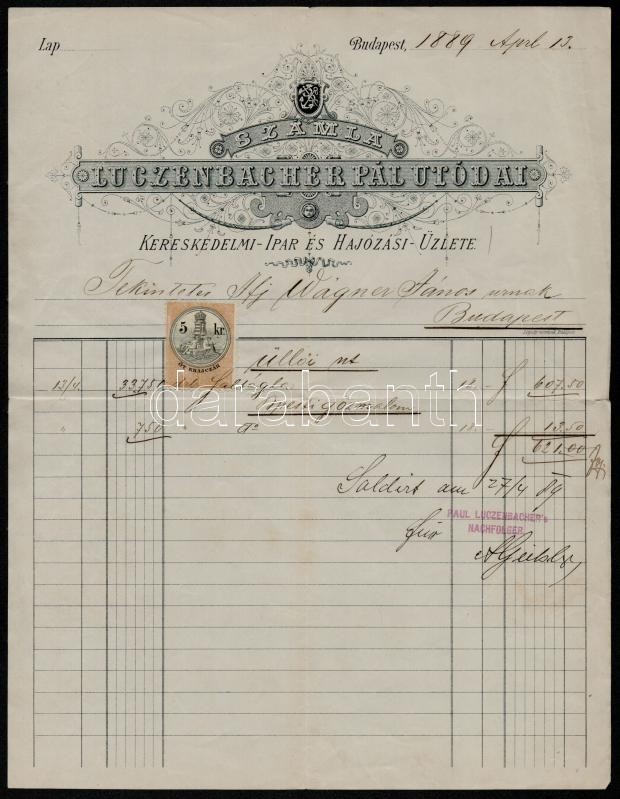 Lap
Budapest, 1889 Apr 13.
SZÁMLA
LUCZENBACHER PÁL UTÓDAI
KERESKEDELMI-IPAR ÉS HAJÓZÁSI-ÜZLETE.
Tekintetes Ifj Wagner János urnak
Budapest
5 kr.
ÖT KRAJCZÁR
üllői ut
13/4 33750 faltégla 18.- f 607.50
" 750 " dº 18.- " 13.50
f 621.00
darabanth
Saldirt am 27/4 89
PAUL LUCZENBACHER's
NACHFOLGER
für